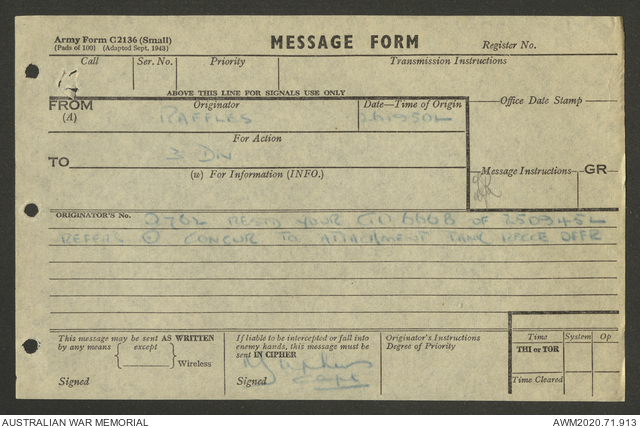 Army Form C2136 (Small)
(Pads of 100) (Adapted Sept. 1943)
MESSAGE FORM
Register No.
Call Ser. No. Priority Transmission Instructions
ABOVE THIS LINE FOR SIGNALS USE ONLY
FROM (A) Originator Date—Time of Origin Office Date Stamp
RAFFLES 261950L
For Action
TO 3 DIV
(w) For Information (INFO.) Message Instructions GR
ORIGINATOR'S No. RESTD YOUR OF 250945L
REFERS CONCUR TO ATTACHMENT TANK RECCE OFFR
This message may be sent AS WRITTEN
by any means except
Wireless
Signed
If liable to be intercepted or fall into
enemy hands, this message must be
sent IN CIPHER
Signed Capt
Originator's Instructions
Degree of Priority
Time System Op
THI or TOR
Time Cleared
AUSTRALIAN WAR MEMORIAL AWM2020.71.913